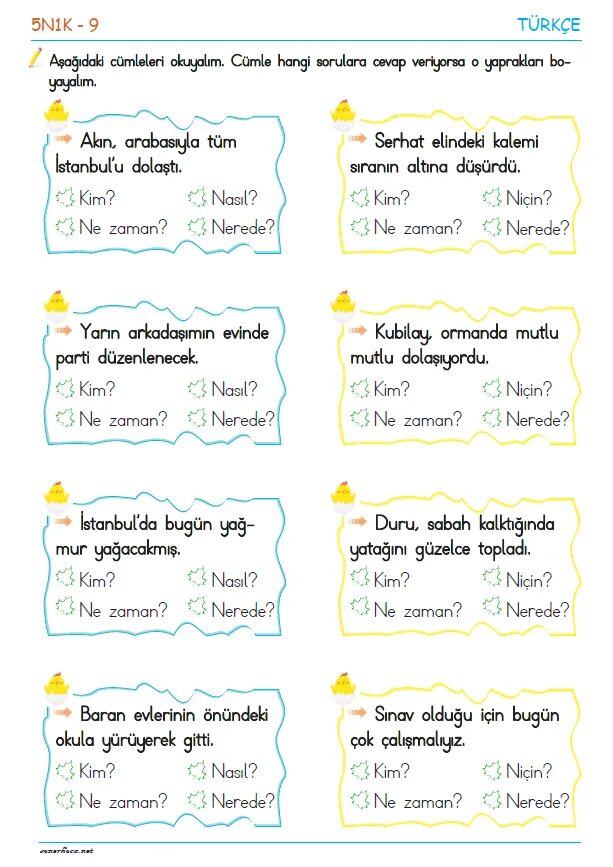 5N1K - 9
TÜRKÇE
Aşağıdaki cümleleri okuyalım. Cümle hangi sorulara cevap veriyorsa o yaprakları bo-
yayalım.
Akın, arabasıyla tüm
İstanbul'u dolaştı.
Kim? Nasıl?
Ne zaman? Nerede?
Serhat elindeki kalemi
sıranın altına düşürdü.
Kim? Niçin?
Ne zaman? Nerede?
Yarın arkadaşımın evinde
parti düzenlenecek.
Kim? Nasıl?
Ne zaman? Nerede?
Kubilay, ormanda mutlu
mutlu dolaşıyordu.
Kim? Niçin?
Ne zaman? Nerede?
İstanbul'da bugün yağ-
mur yağacakmış.
Kim? Nasıl?
Ne zaman? Nerede?
Duru, sabah kalktığında
yatağını güzelce topladı.
Kim? Niçin?
Ne zaman? Nerede?
Baran evlerinin önündeki
okula yürüyerek gitti.
Kim? Nasıl?
Ne zaman? Nerede?
Sınav olduğu için bugün
çok çalışmalıyız.
Kim? Niçin?
Ne zaman? Nerede?